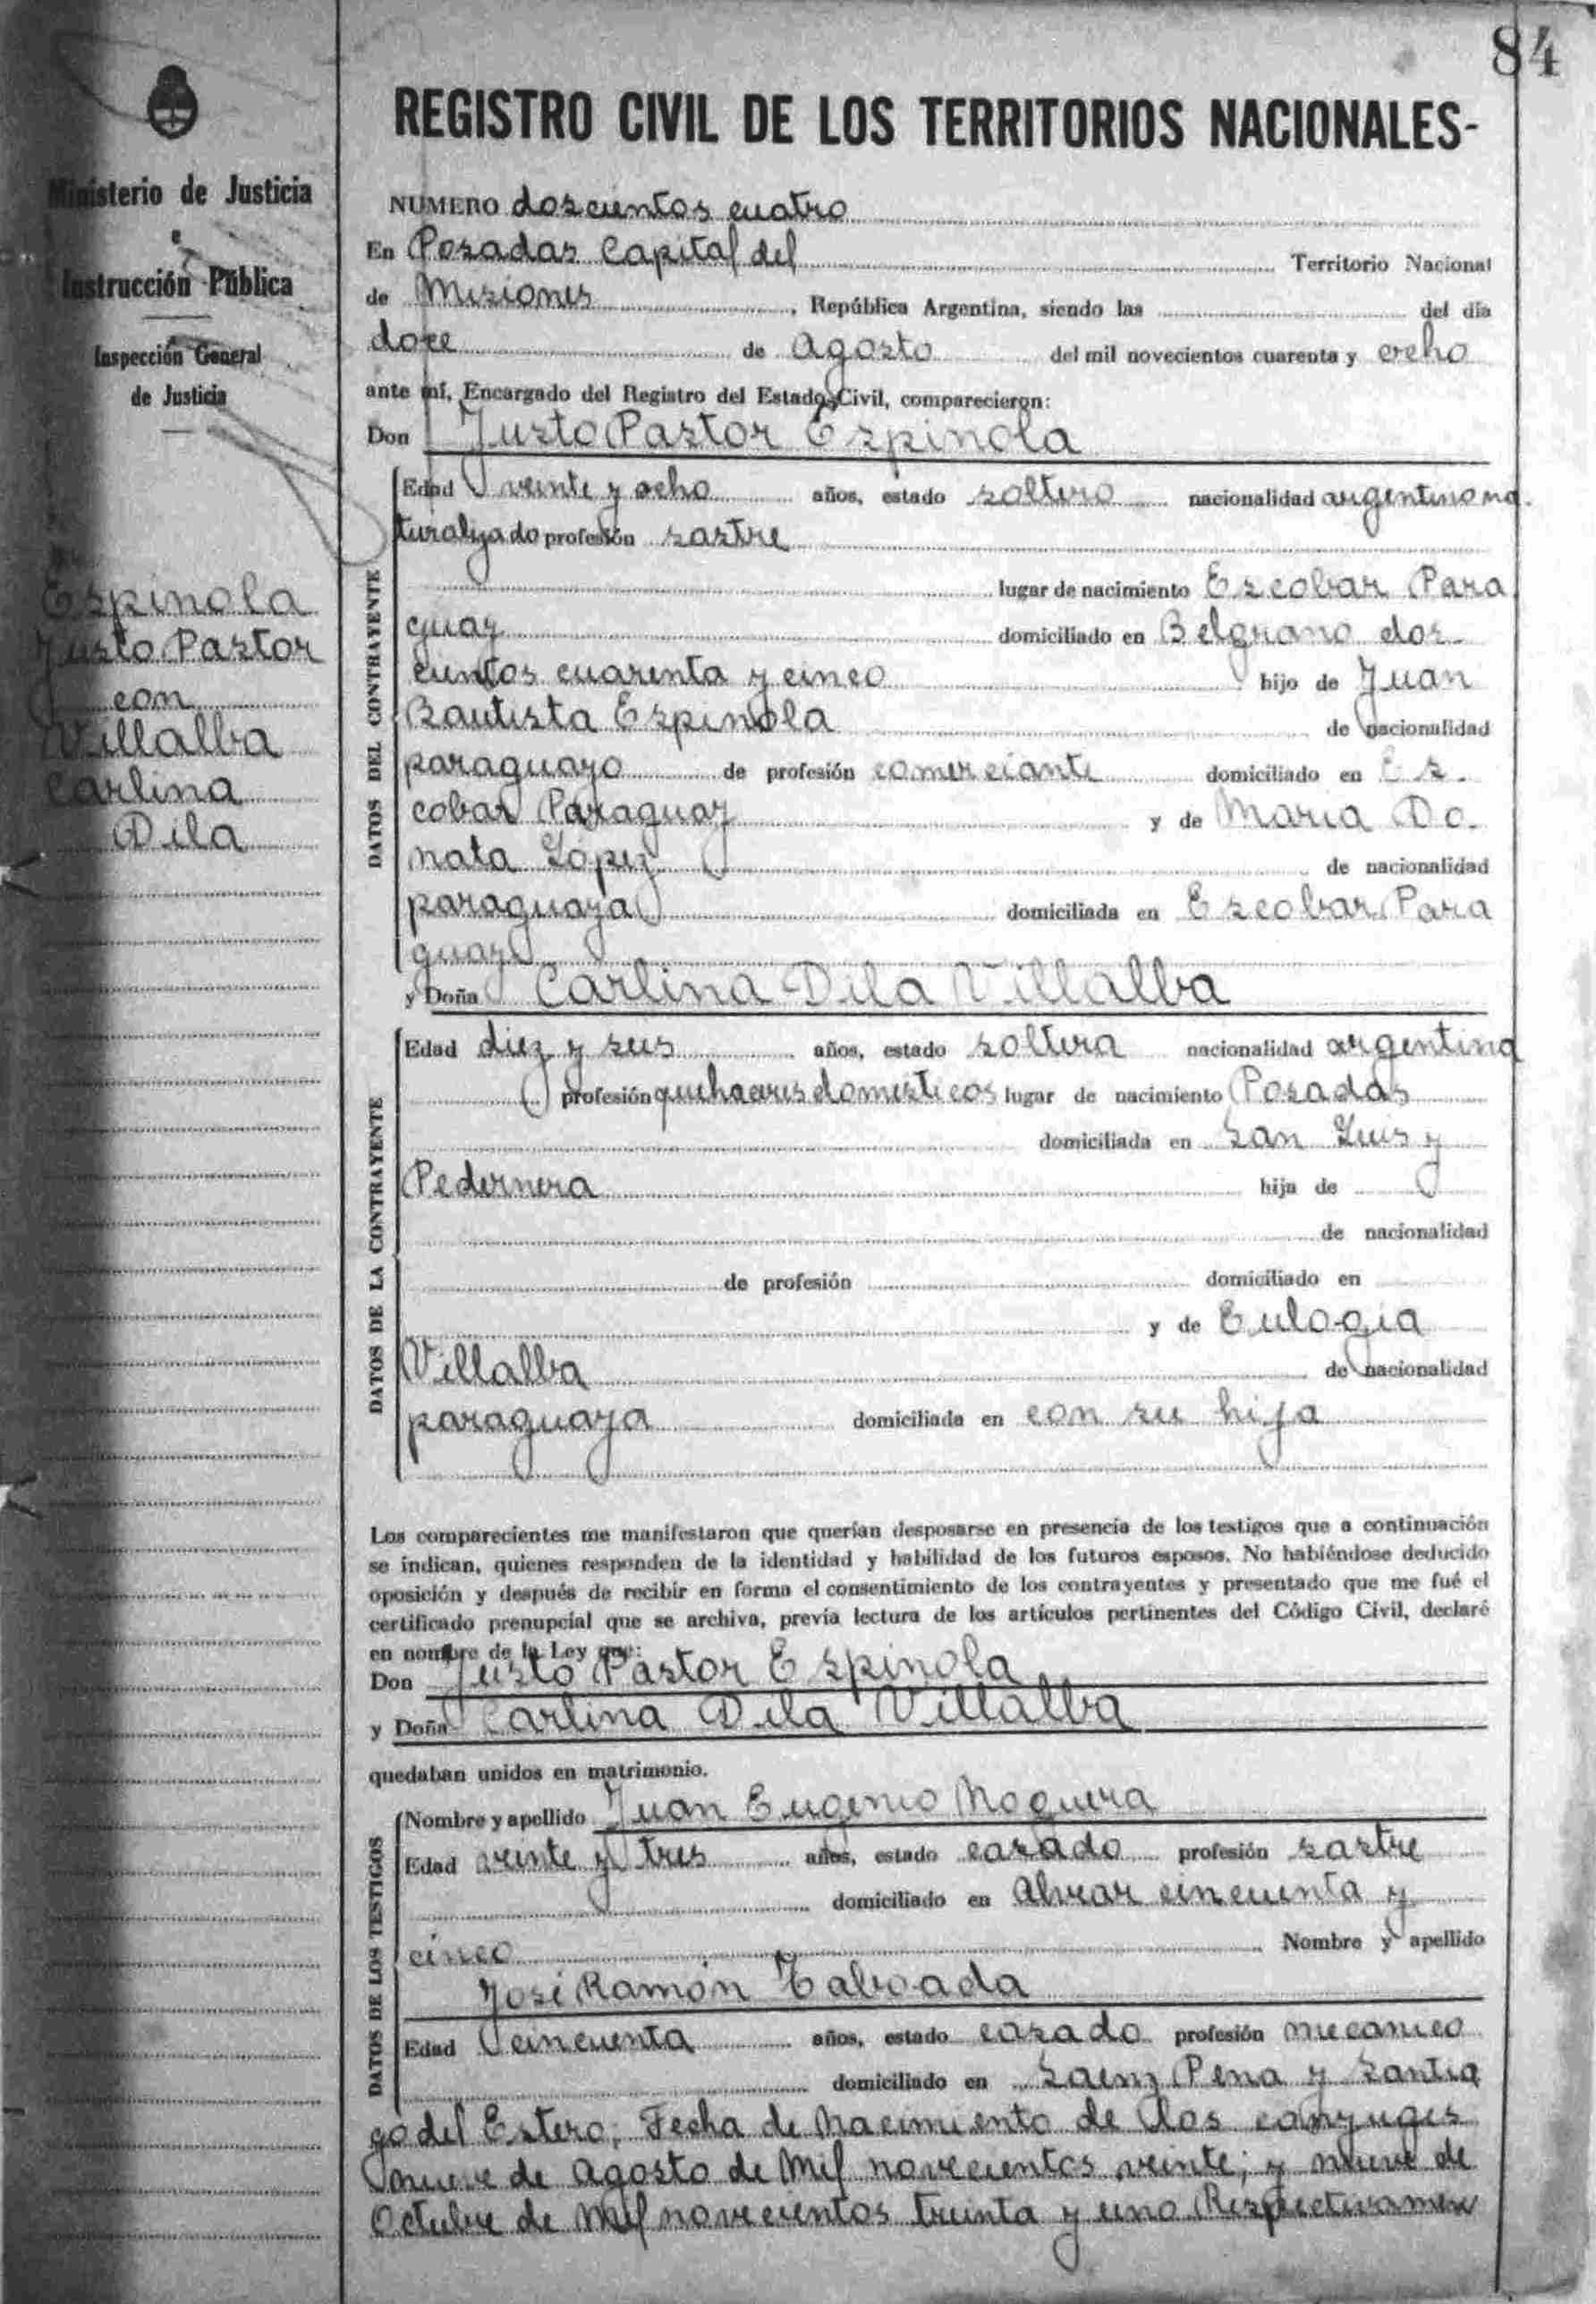 84
Ministerio de Justicia
e
Instrucción Pública
Inspección General
de Justicia
Espinola
Justo Pastor
con
Villalba
Carlina
Dila
REGISTRO CIVIL DE LOS TERRITORIOS NACIONALES-
NUMERO doscientos cuatro
En Posadas Capital del Territorio Nacional
de Misiones, República Argentina, siendo las del día
doce de Agosto del mil novecientos cuarenta y ocho
ante mí, Encargado del Registro del Estado Civil, comparecieron:
Don Justo Pastor Espinola
DATOS DEL CONTRAYENTE
Edad veinte y ocho años, estado soltero nacionalidad argentino na
turalizado profesión sastre
lugar de nacimiento Escobar Para
guay domiciliado en Belgrano dos-
cientos cuarenta y cinco hijo de Juan
Bautista Espinola de nacionalidad
paraguayo de profesión comerciante domiciliado en Es-
cobar Paraguay y de Maria Do-
nata López de nacionalidad
paraguaya domiciliada en Escobar Para
guay
y Doña Carlina Dila Villalba
DATOS DE LA CONTRAYENTE
Edad diez y seis años, estado soltera nacionalidad argentina
profesión quehaceres domesticos lugar de nacimiento Posadas
domiciliada en San Luis y
Pedernera hija de
de nacionalidad
de profesión domiciliado en
y de Eulogia
Villalba de nacionalidad
paraguaya domiciliada en con su hija
Los comparecientes me manifestaron que querían desposarse en presencia de los testigos que a continuación
se indican, quienes responden de la identidad y habilidad de los futuros esposos. No habiéndose deducido
oposición y después de recibir en forma el consentimiento de los contrayentes y presentado que me fué el
certificado prenupcial que se archiva, previa lectura de los artículos pertinentes del Código Civil, declaré
en nombre de la Ley que:
Don Justo Pastor Espinola
y Doña Carlina Dila Villalba
quedaban unidos en matrimonio.
DATOS DE LOS TESTIGOS
Nombre y apellido Juan Eugenio Noguera
Edad veinte y tres años, estado casado profesión sastre
domiciliado en Alvear cincuenta y
cinco Nombre y apellido
José Ramón Taboada
Edad cincuenta años, estado casado profesión mecanico
domiciliado en Saenz Pena y Santia
go del Estero; Fecha de Nacimiento de los conyuges
nueve de Agosto de Mil novecientos veinte; y nueve de
Octubre de Mil novecientos treinta y uno Respectivamen